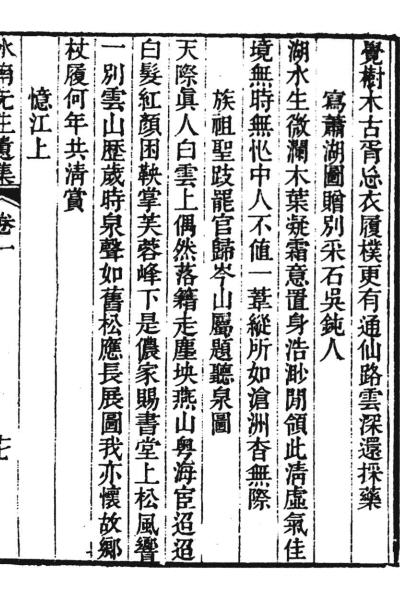 覺樹木古胥忘衣履樸更有通仙路雲深還採藥
寫蕭湖圖贈別采石吳鈍人
湖水生微瀾木葉疑霜意置身浩渺閒領此淸虛氣佳
境無時無怭中人不値一葦縱所如滄洲杳無際
族祖聖跂罷官歸岑山屬題聽泉圖
天際眞人白雲上偶然落籍走塵坱燕山粵海宦迢迢
白髮紅顏困鞅掌芙蓉峰下是儂家賜書堂上松風響
一別雲山歷歲時泉聲如舊松應長展圖我亦懷故鄉
杖履何年共淸賞
憶江上
先生遺集
卷一